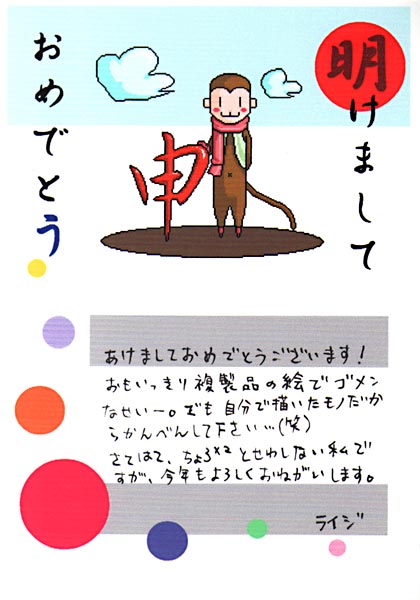 明けまして
おめでとう
申
あけましておめでとうございます！
おもいっきり複製品の絵でゴメン
なせいー。でも自分で描いたモノだか
らかんべんして下さい…(笑)
さてはて、ちょろxxとせわしない私で
すが、今年もよろしくおねがいします。
ライジ